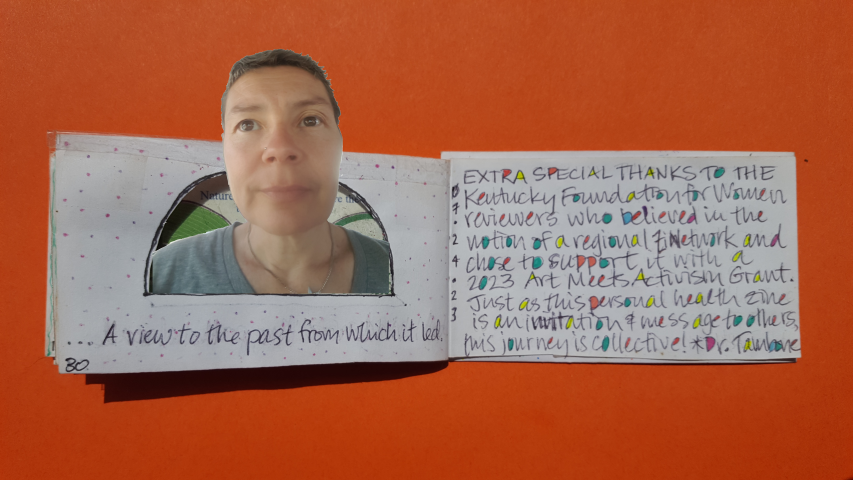 Nature
... A view to the past from which it led.
80
EXTRA SPECIAL THANKS TO THE
Kentucky Foundation for Women
reviewers who believed in the
notion of a regional ZiNetwork and
chose to support it with a
2023 Art Meets Activism Grant.
Just as this personal health zine
is an invitation & message to others,
this journey is collective! *Dr.
07.24.23